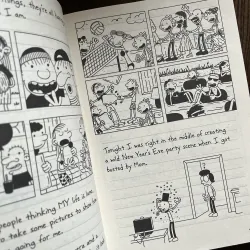 things, they're all
I am.
people thinking MY life is
take some pictures to show
going for me.
and a
Tonight I was right in the middle of creating
a wild New Year's Eve party scene when I got
busted by Mom.